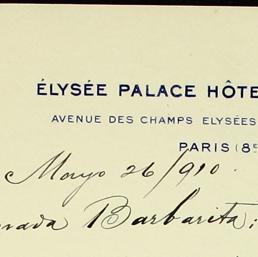 ÉLYSÉE PALACE HÔTE
AVENUE DES CHAMPS ELYSÉES
PARIS (8E
Mayo 26/910.
nada Barbarita: